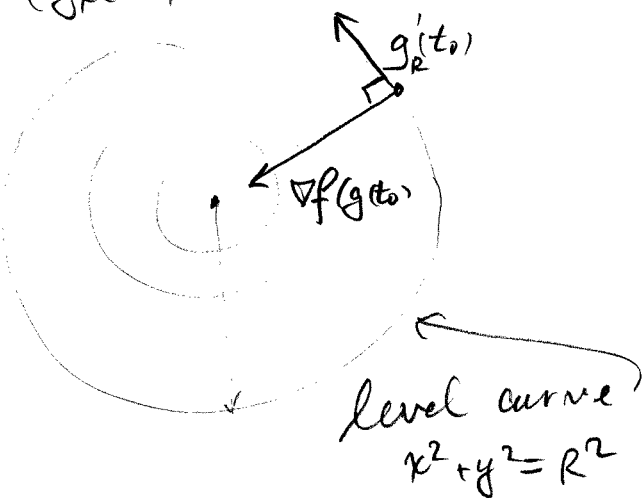 g'_R(t_0)
∇f(g(t_0)
level curve
x² + y² = R²